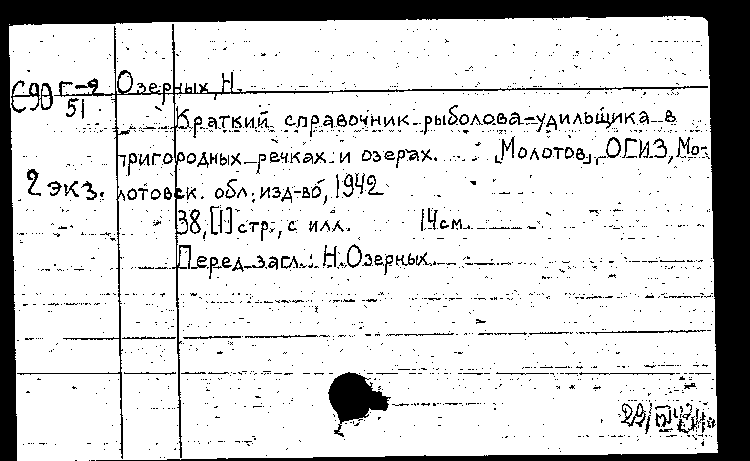 С90 Г-9
51
Озерных, Н.
Краткий справочник рыболова-удильщика в
пригородных речках и озерах. [Молотов], ОГИЗ, Мо-
2 экз. лотовск. обл. изд-во, 1942
38, [1] стр., с илл. 14 см.
Перед загл.: Н. Озерных.